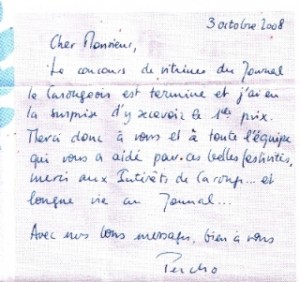 3 octobre 2008
Cher Monsieur,
Le concours de vitrines du Journal
le Carougeois est terminé et j'ai eu
la surprise d'y recevoir le 1er prix.
Merci donc à vous et à toute l'équipe
qui vous a aidé par ces belles festivités,
merci aux Intérêts de Carouge... et
longue vie au Journal...
Avec mes bons messages, bien à vous